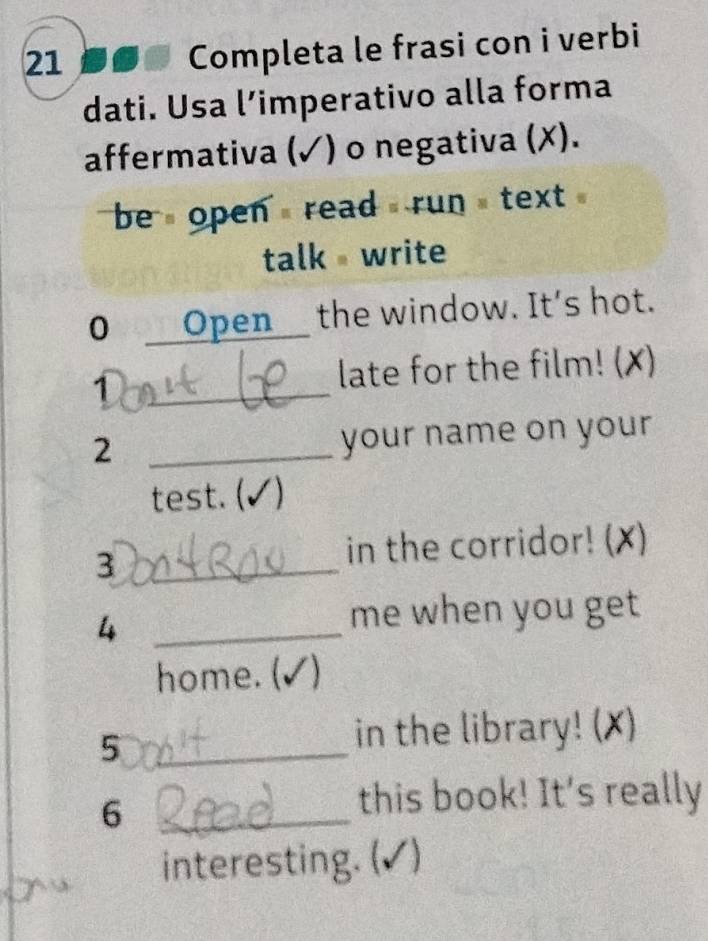 21 Completa le frasi con i verbi
dati. Usa l'imperativo alla forma
affermativa (✓) o negativa (X).
be ▪ open ▪ read ▪ run ▪ text ▪
talk ▪ write
0 Open the window. It's hot.
1 Don't be late for the film! (X)
2 ________ your name on your
test. (✓)
3 ________ in the corridor! (X)
4 ________ me when you get
home. (✓)
5 Don't ________ in the library! (X)
6 Read this book! It's really
interesting. (✓)